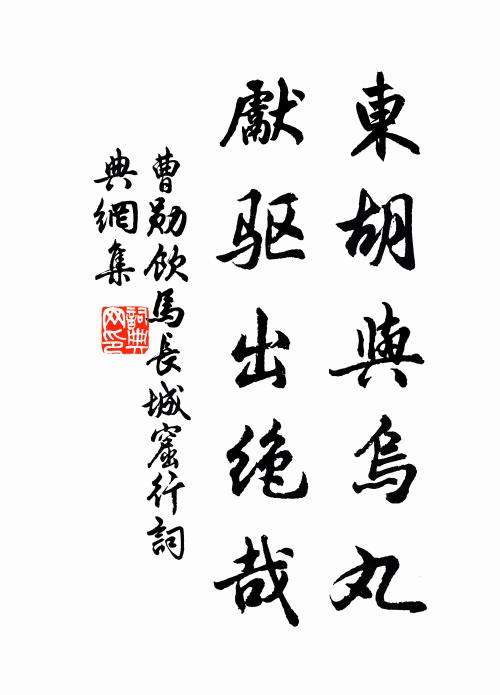 東胡與烏丸
獻驱出绝哉
曹勋飲馬長城窟行詞
典網集
詞典网印